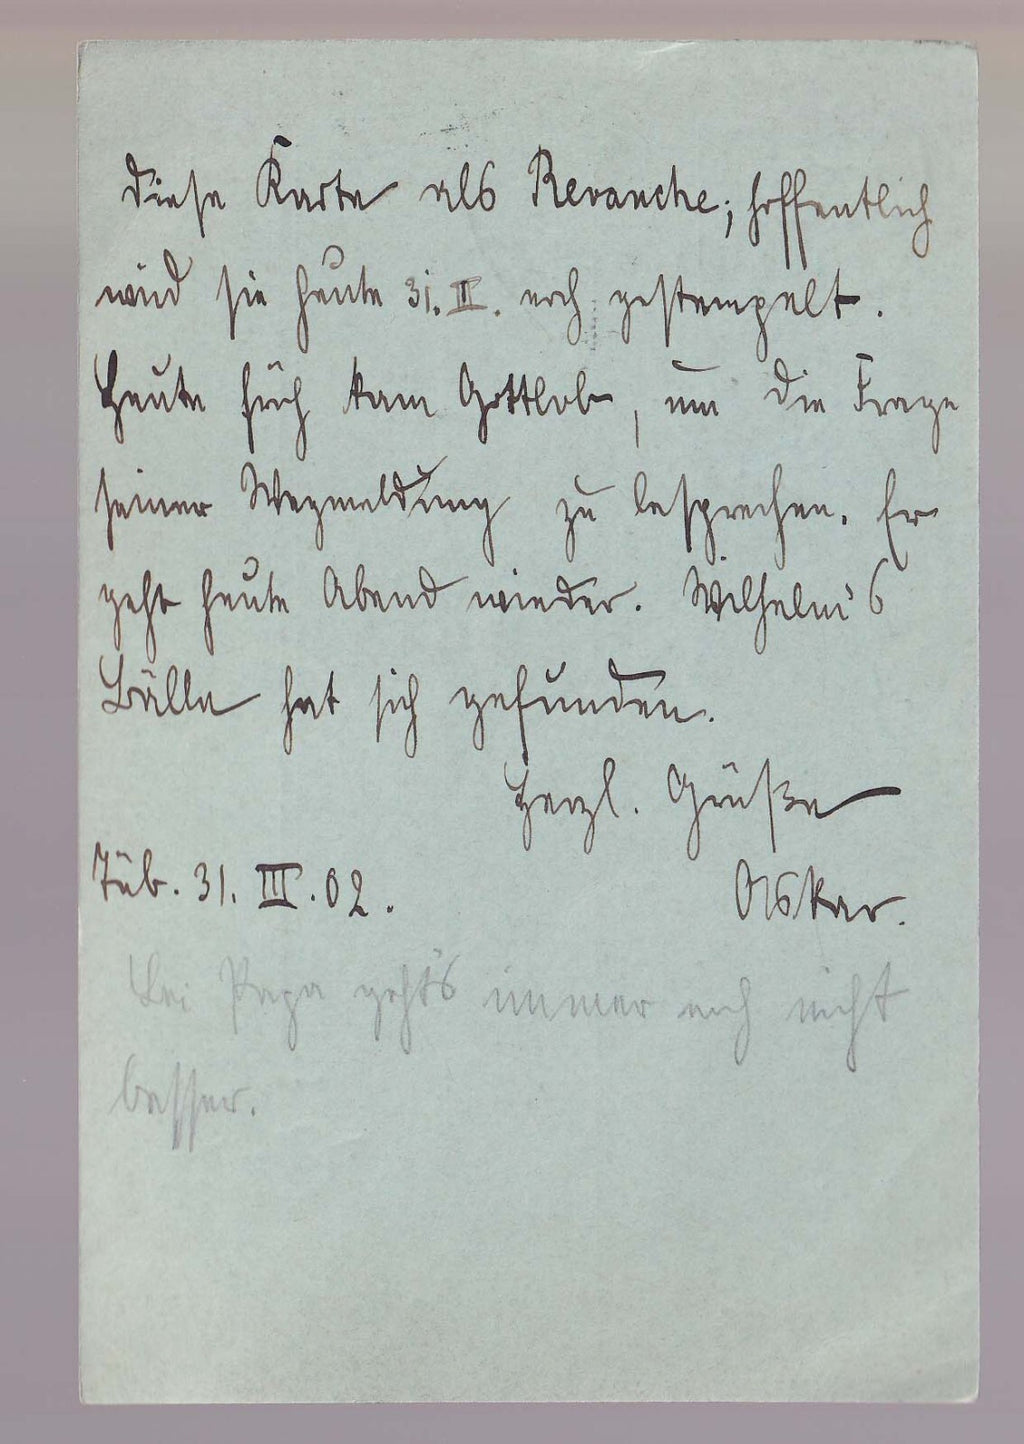 Diese Karte als Revanche; hoffentlich
wird sie heute 31. III. noch gestempelt.
Heute früh kam Gottlob, um die Frage
seiner Wegmeldung zu besprechen. Er
geht heute Abend wieder. Wilhelm's
hat sich gefunden.
Herzl. Grüße
Tüb. 31. III. 02.
Oskar.
Bei Papa geht's immer noch nicht
besser.